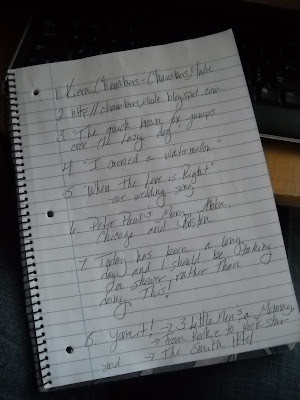 1. Kiera Chambers - Chambers Made
2. http://chambersmade.blogspot.com
3. The quick brown fox jumps
over the lazy dog
4. "I carried a watermelon."
5. "When the Love is Right"
- our wedding song
6. Peter Paul & Mary,
Chicago and Boston
7. Today has been a long
day and should be taking
a shower rather than
doing this!
8. → 3 Little Men & a Mommy
→ From Rookie to Rock Star
and → The Smith